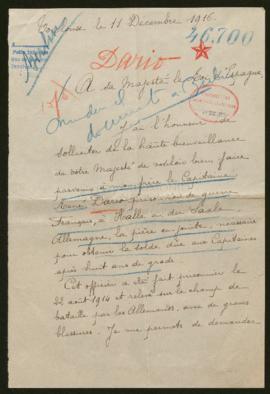 Toulouse le 11 Décembre 1916.
46.700
Dario
A Sa Majesté le Roi d'Espagne
J'ai l'honneur de
solliciter de la haute bienveillance
de votre Majesté de vouloir bien faire
parvenir à mon frère le Capitaine
René Dario prisonnier de guerre
Français, à Halle an der Saale
Allemagne, la pièce ci-jointe, nécessaire
pour obtenir la solde due aux Capitaines
après huit ans de grade.
Cet officier a été fait prisonnier le
22 août 1914 et relevé sur le champ de
bataille par les Allemands, avec de graves
blessures. Je me permets de demander